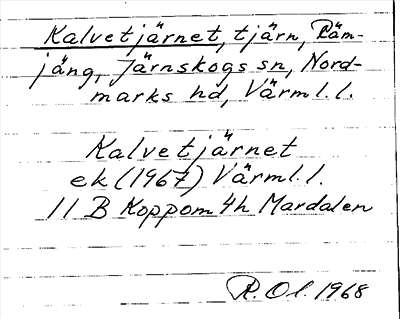 Kalvetjärnet, tjärn, Räm-
jäng, Järnskogs sn, Nord-
marks hd, Värml. l.
Kalvetjärnet
ek (1967) Värml. l.
11 B Koppom 4h Mardalen
R. Ol. 1968